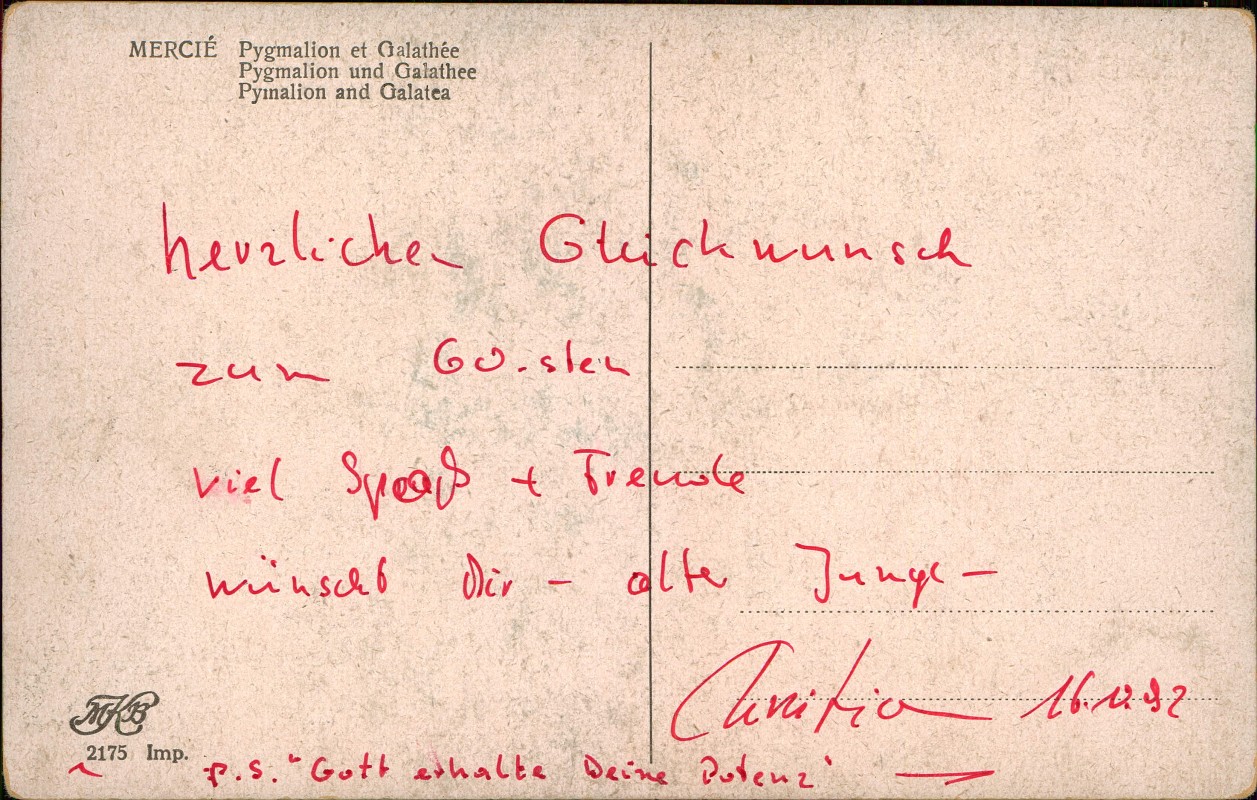 MERCIÉ Pygmalion et Galathée
Pygmalion und Galathee
Pymalion and Galatea
herzlichen Glückwunsch
zum 60.sten
viel Spaß + Freude
wünscht Dir – alter Junge –
Christian
MKB
2175 Imp.
p.s. "Gott erhalte Deine Potenz"